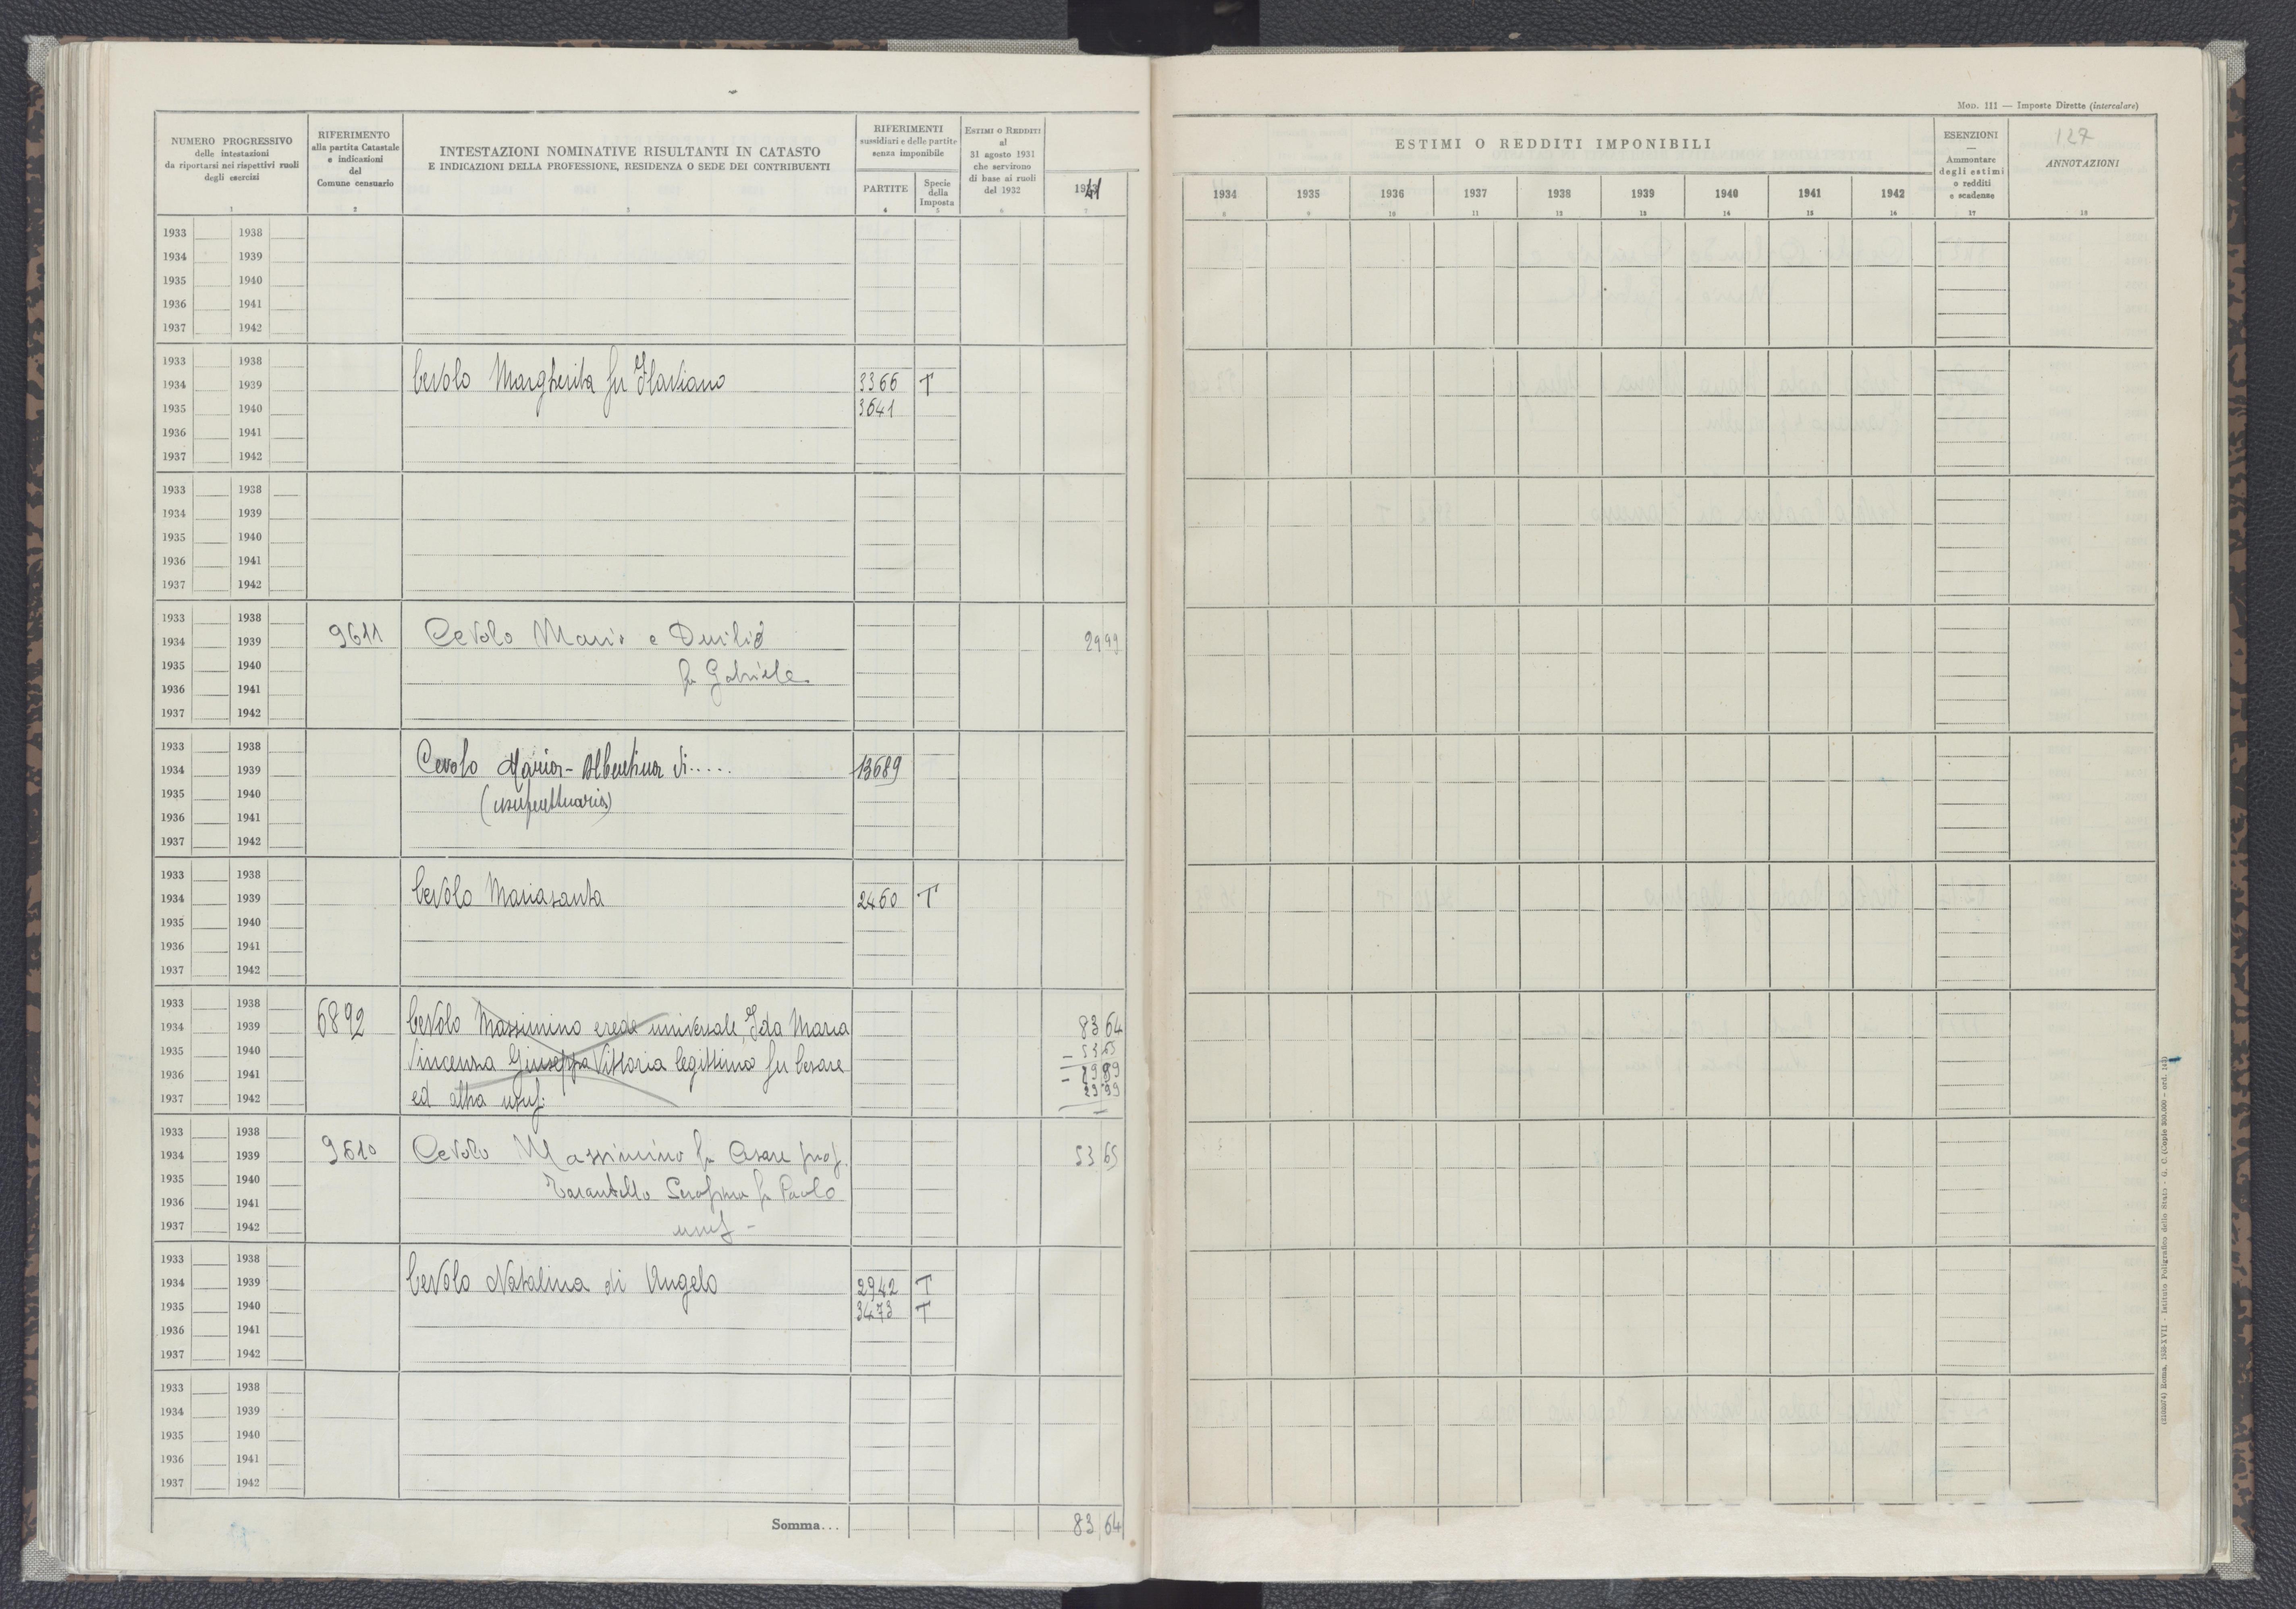 Mod. 111 — Imposte Dirette (intercalare)
127
NUMERO PROGRESSIVO
delle intestazioni
da riportarsi nei rispettivi ruoli
degli esercizi
1
RIFERIMENTO
alla partita Catastale
e indicazioni
del
Comune censuario
2
INTESTAZIONI NOMINATIVE RISULTANTI IN CATASTO
E INDICAZIONI DELLA PROFESSIONE, RESIDENZA O SEDE DEI CONTRIBUENTI
3
RIFERIMENTI
sussidiari e delle partite
senza imponibile
PARTITE
4
Specie
della
Imposta
5
Estimi o Redditi
al
31 agosto 1931
che servirono
di base ai ruoli
del 1932
6
1941
7
ESTIMI O REDDITI IMPONIBILI
1934 1935 1936 1937 1938 1939 1940 1941 1942
8 9 10 11 12 13 14 15 16
ESENZIONI
—
Ammontare
degli estimi
o redditi
e scadenze
17
ANNOTAZIONI
18
1933 1938
1934 1939
1935 1940
1936 1941
1937 1942
1933 1938
1934 1939 Cevolo Margherita fu Flaviano 3366 T
1935 1940 3641
1936 1941
1937 1942
1933 1938
1934 1939
1935 1940
1936 1941
1937 1942
1933 1938
1934 1939 9611 Cevolo Mario e Duilio 29 99
1935 1940 fu Gabriele
1936 1941
1937 1942
1933 1938
1934 1939 Cevolo Maria-Albertina di..... 13689
1935 1940 (usufruttuaria)
1936 1941
1937 1942
1933 1938
1934 1939 Cevolo Mariasanta 2460 T
1935 1940
1936 1941
1937 1942
1933 1938
1934 1939 6892 Cevolo Massimino erede universale, Ida Maria 83 64
1935 1940 Vincenza Giuseppa Vittoria legittima fu Cesare - 53 65
1936 1941 - 29 99
1937 1942 ed altra usuf. 29 99
1933 1938
1934 1939 9610 Cevolo Massimino fu Cesare prop. 53 65
1935 1940 Tarantello Serafina fu Paolo
1936 1941
1937 1942 usuf -
1933 1938
1934 1939 Cevolo Natalina di Angelo 2942 T
1935 1940 3473 T
1936 1941
1937 1942
1933 1938
1934 1939
1935 1940
1936 1941
1937 1942
Somma... 83 64